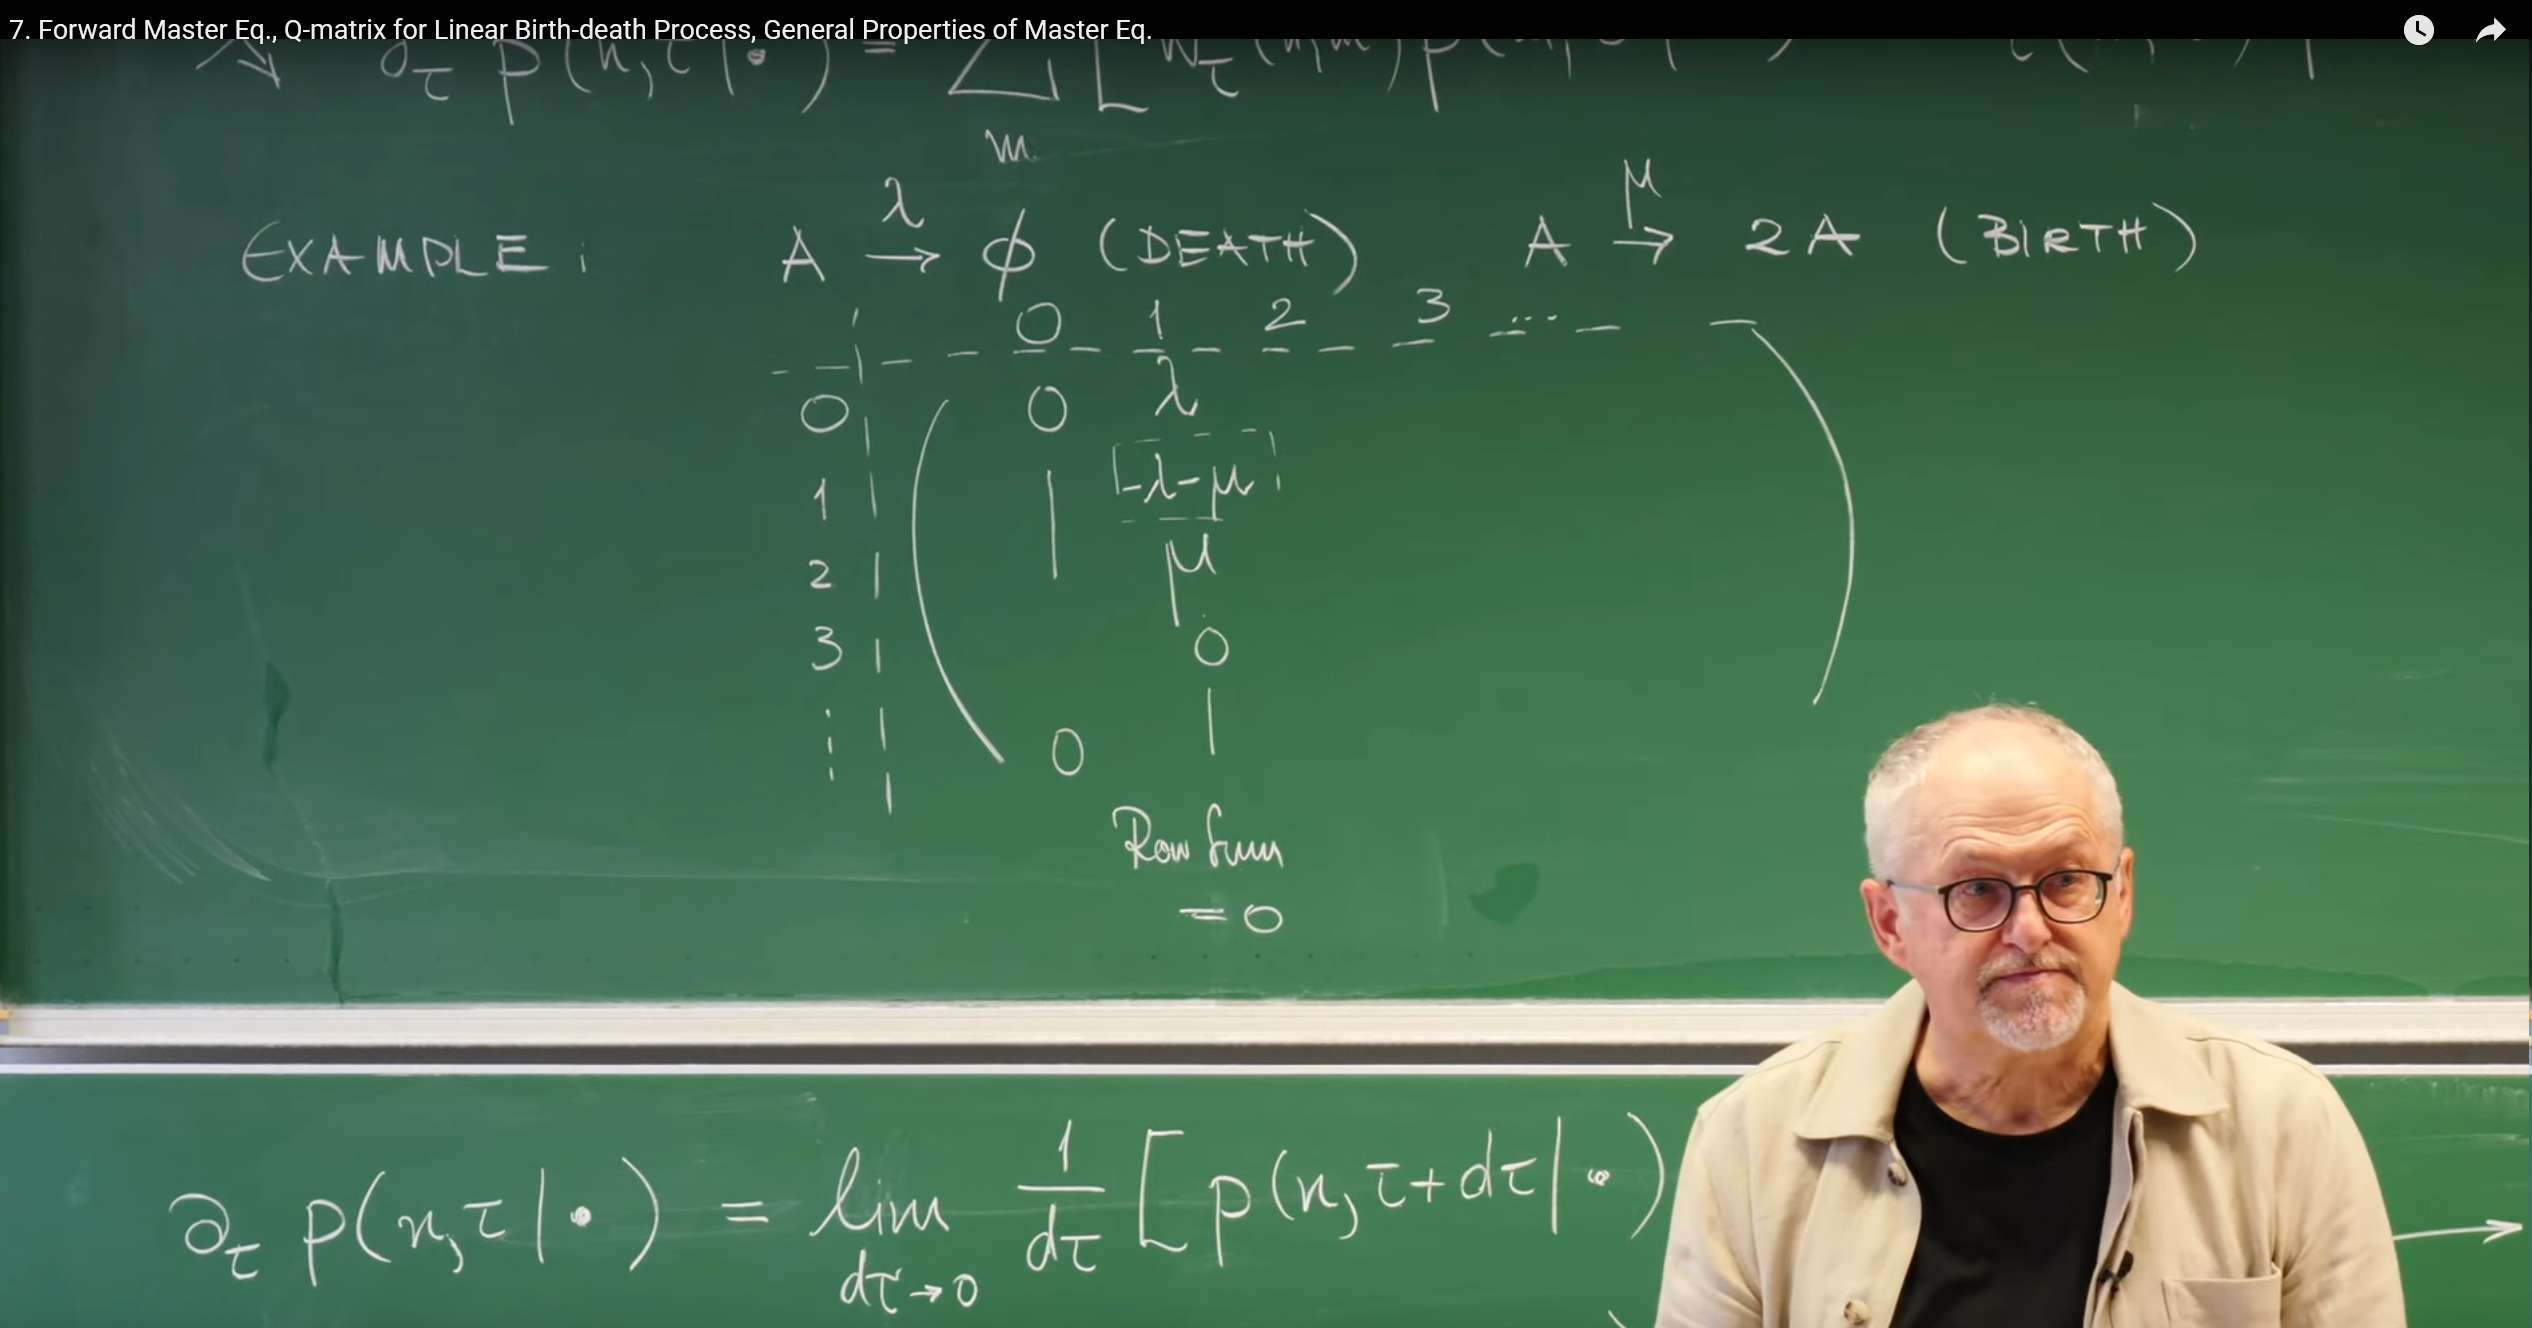 7. Forward Master Eq., Q-matrix for Linear Birth-death Process, General Properties of Master Eq.
∂τ p(n,τ|•) = Σ [ wτ(n,m) p(
m
EXAMPLE: A →λ ϕ (DEATH) A →μ 2A (BIRTH)
0 1 2 3 ...
0 0 λ
1 | -λ-μ
2 μ
3 0
⋮ 0 |
Row Sum
= 0
∂τ p(n,τ|•) = lim 1/dτ [ p(n,τ+dτ|•)
dτ→0